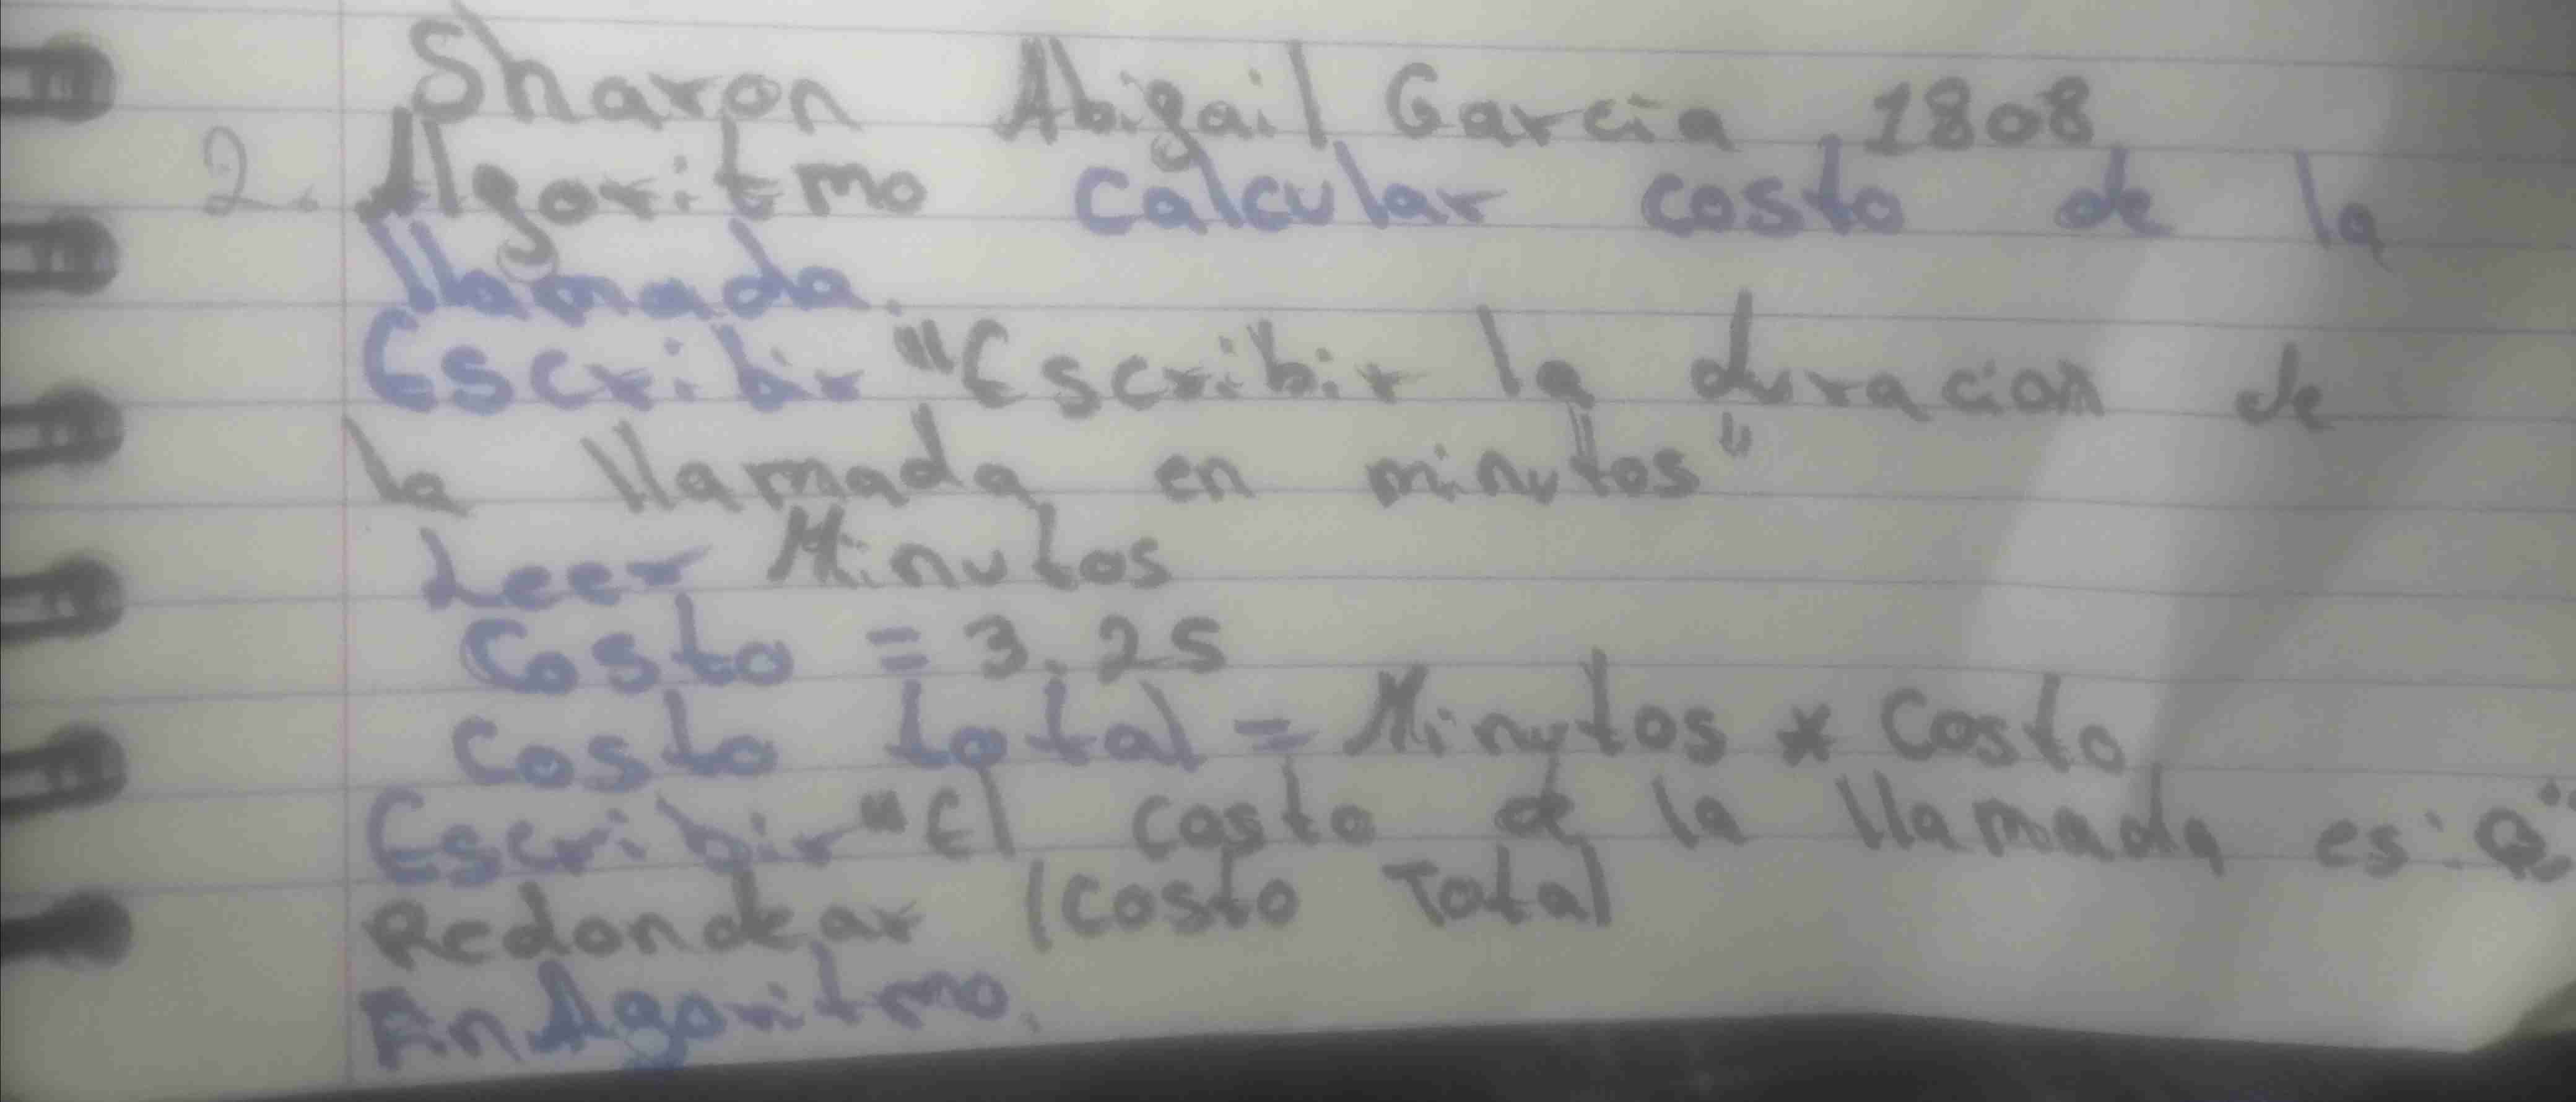 Sharon Abigail Garcia 1808
2. Algoritmo Calcular costo de la
llamada.
Escribir "Escribir la duracion de
la llamada en minutos"
Leer Minutos
Costo = 3.25
Costo total = Minutos * Costo
Escribir "El costo de la llamada es: Q"
Redondear (Costo Total
FinAlgoritmo.